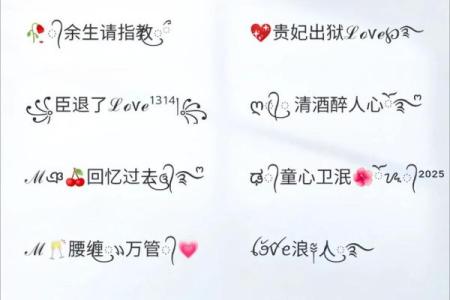 🥀᭄余生请指教ꦿ
💖贵妃出狱𝓛𝓸𝓿𝓮℘࿐
꧁臣退了𝓛𝓸𝓿𝓮¹³¹⁴꧂
ღ᭄清酒醉人心ོ࿐
ℳ๓🍒回忆过去ω᭄࿐ღ
ਊ᭄童心卫泯🌺ོꦿ᭄²⁰²⁵
ℳ🥂腰缠ꦿ๖万管᭄💗
ℓốνe浪༊人࿐